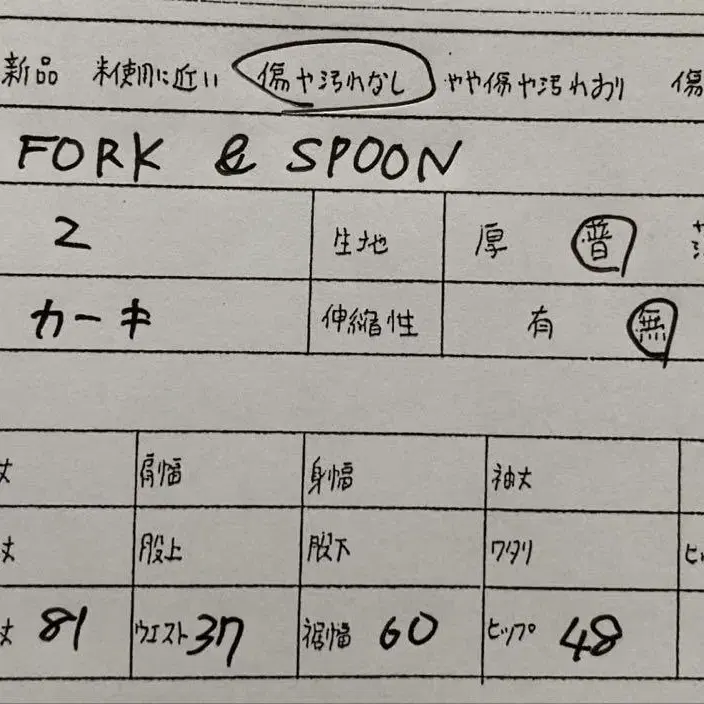 新品 未使用に近い 傷や汚れなし やや傷や汚れあり 傷
FORK & SPOON
2 生地 厚 普
カーキ 伸縮性 有 無
丈 肩幅 身幅 袖丈
丈 股上 股下 ワタリ ヒ
丈 81 ウエスト 37 裾幅 60 ヒップ 48